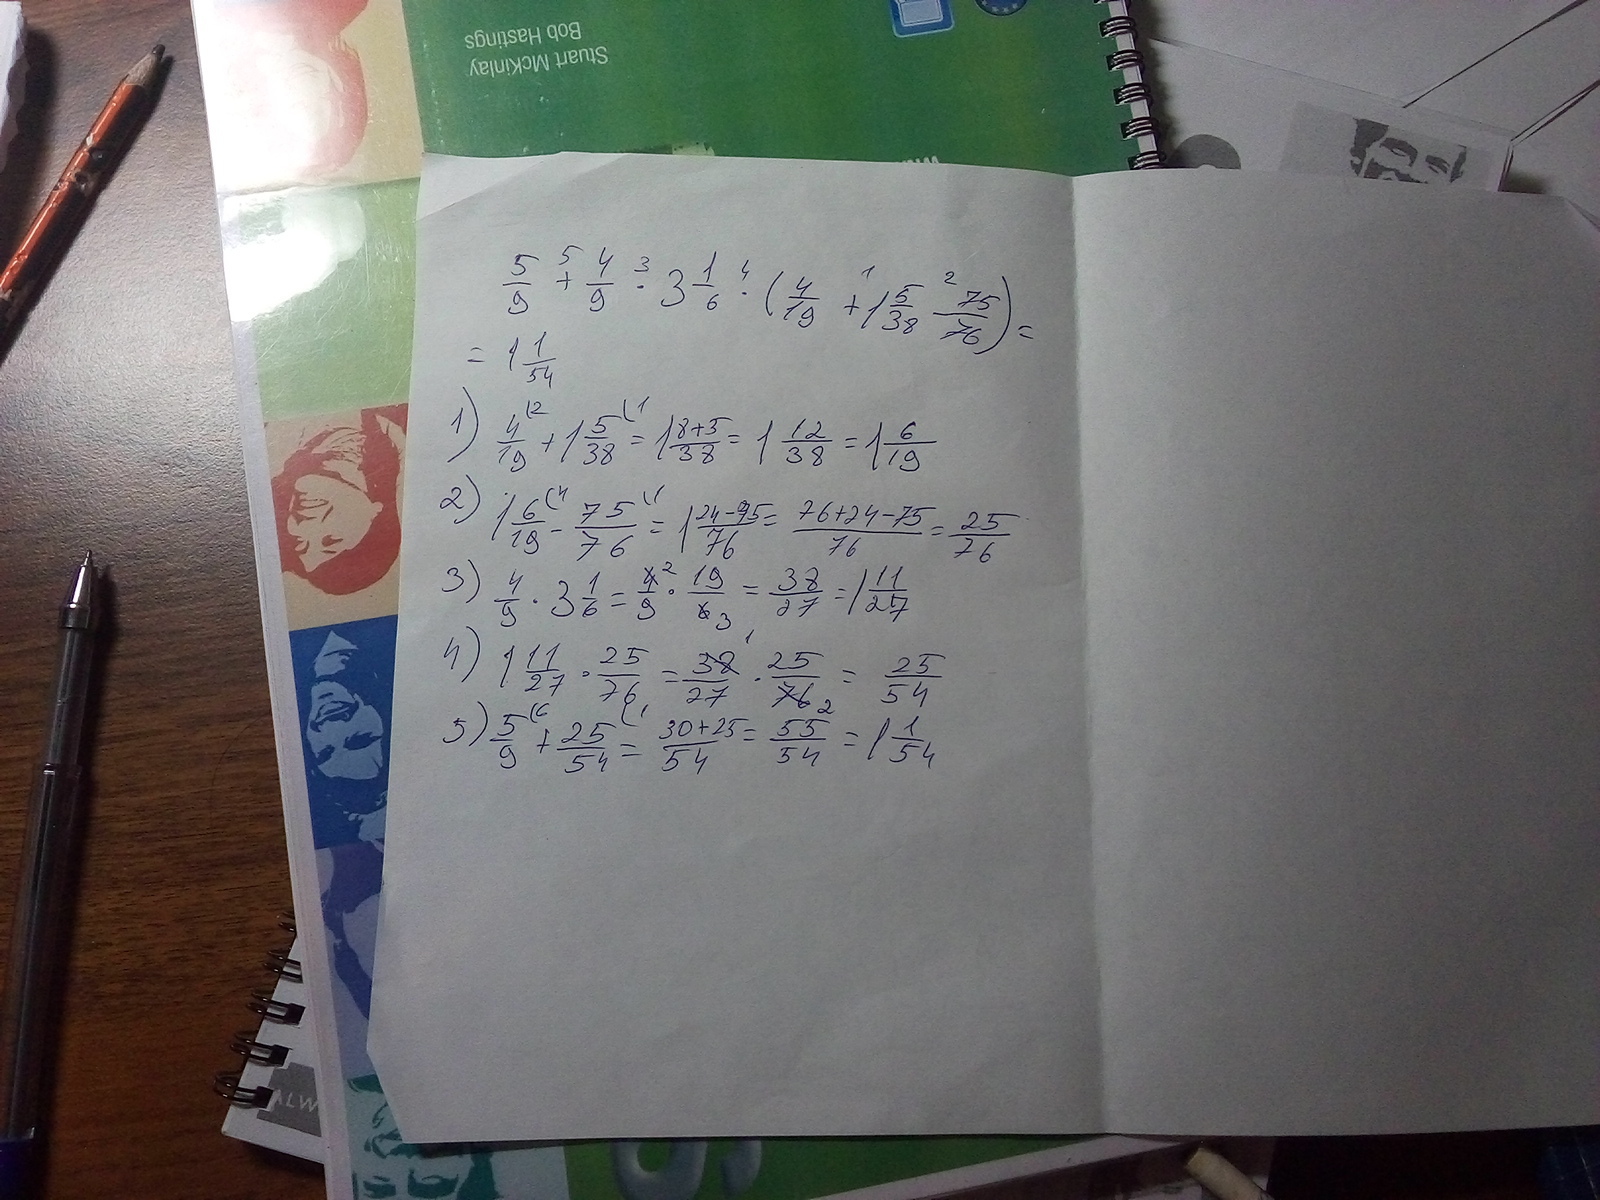 Stuart McKinlay
Bob Hastings
5/9 + 4/9 · 3 1/6 · (4/19 + 1 5/38 - 75/76) =
= 1 1/54
1) 4/19 + 1 5/38 = 1 8+5/38 = 1 12/38 = 1 6/19
2) 1 6/19 - 75/76 = 1 24-75/76 = 76+24-75/76 = 25/76
3) 4/9 · 3 1/6 = 4/9 · 19/6 = 38/27 = 1 11/27
4) 1 11/27 · 25/76 = 38/27 · 25/76 = 25/54
5) 5/9 + 25/54 = 30+25/54 = 55/54 = 1 1/54